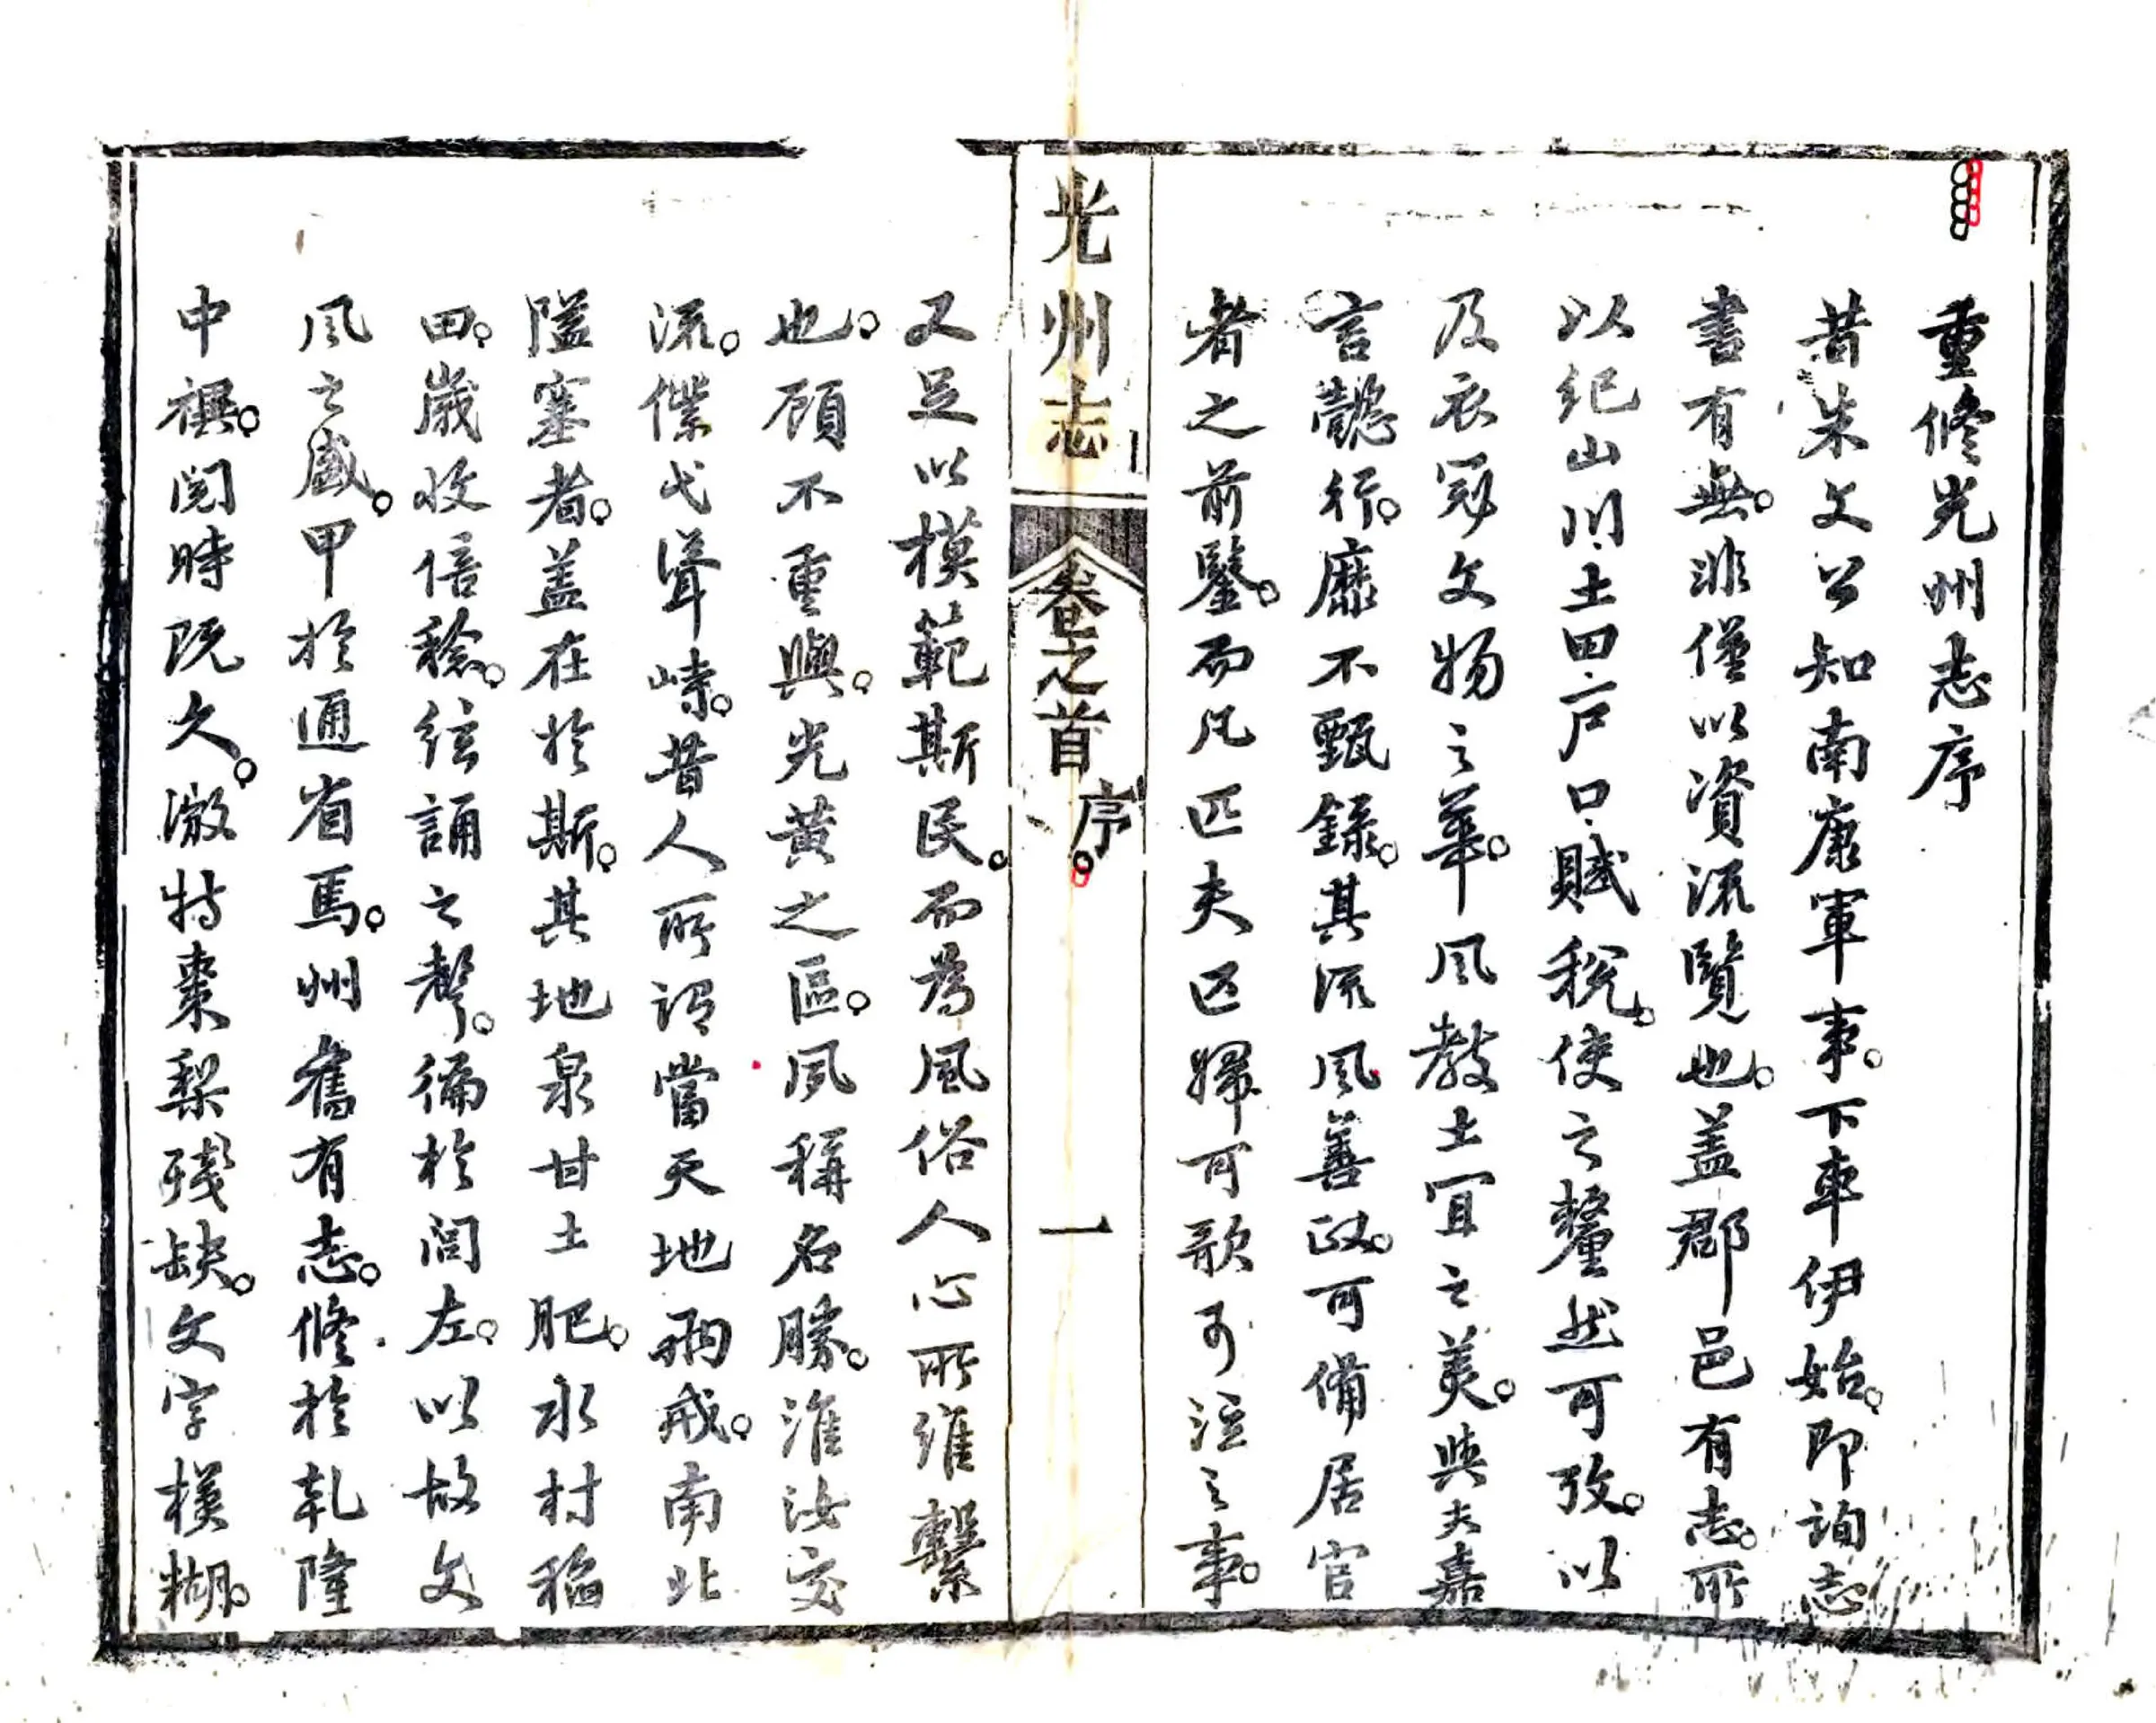 重修光州志序
昔朱文公知南康軍事。下車伊始。即詢志
書有無。非僅以資流覽也。盖郡邑有志。所
以纪山川、土田、户口、賦稅。使之釐然可攷。以
及衣冠文物之華。風教土宜之美。與夫嘉
言懿行。靡不甄錄。其流風善政。可備居官
者之前鑒。而凡匹夫匹婦可歌可泣之事。
又足以模範斯民。而為風俗人心所維繫
也。顧不重與。光黄之區。夙稱名勝。淮汝交
流。僕弋聳峙。昔人所谓當天地兩戒。南北
隘塞者。盖在於斯。其地泉甘土肥。水村稻
田。歲收倍稔。絃誦之聲。徧於閭左。以故文
風之盛。甲於通省焉。州舊有志。修於乾隆
中禩。閱時既久。漵特棗梨殘缺。文字模糊。
光州志 卷之首 序。 一